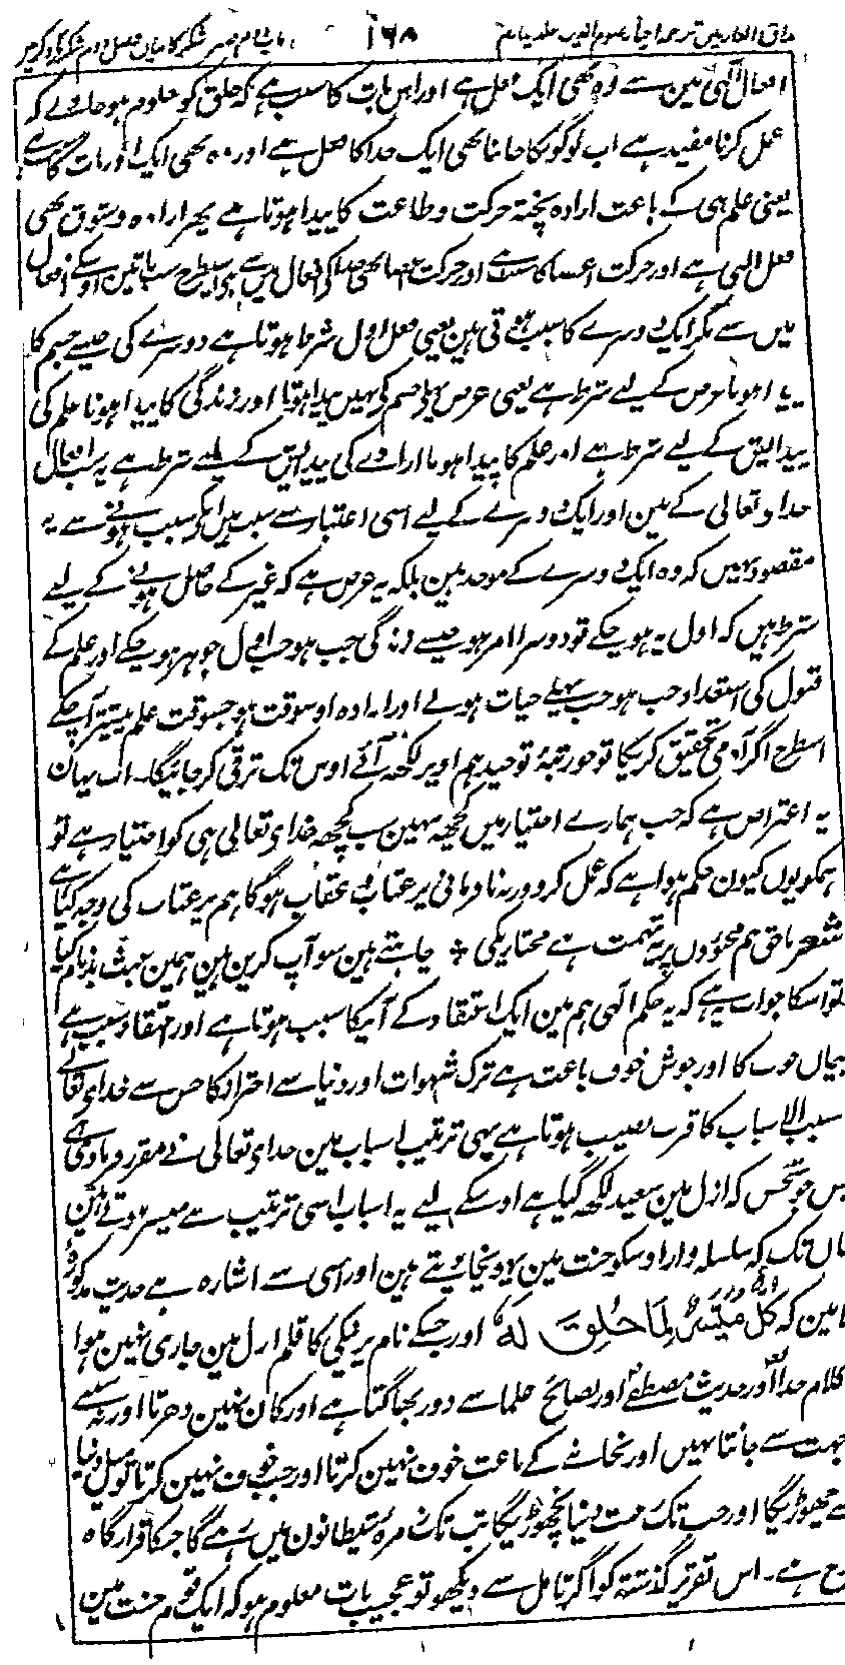 مذاق العارفین ترجمہ احیاء علوم الدین جلد چہارم ۱۶۸ باب دوم صبر و شکر کا بیان فصل دوم شکر کا ذکر
افعال الٰہی مین سے وہ بھی ایک فعل ہے اور اس بات کا سبب ہے کہ خلق کو معلوم ہو جاوے کہ
عمل کرنا مفید ہے اب لوگونکا جاننا بھی ایک خدا کا فعل ہے اور وہ بھی ایک اور بات کا سبب ہے
یعنی علم ہی کے باعث ارادہ پختہ حرکت و طاعت کا پیدا ہوتا ہے پھر ارادہ و شوق بھی
فعل الٰہی ہے اور حرکت اعضا کا سبب ہے اور حرکت اعضا بھی خدا کی افعال میں سے ہے اسیطرح سب باتین اوسکے افعال
میں سے مگر ایک دوسرے کا سبب ہوتی ہین یعنی فعل اول شرط ہوتا ہے دوسرے کی جیسے جسم کا
پیدا ہونا عرض کے لیے شرط ہے یعنی عرض پہلے جسم کے نہیں پیدا ہوتا اور زندگی کا پیدا ہونا علم کی
پیدایش کے لیے شرط ہے اور علم کا پیدا ہونا ارادے کی پیدایش کے لیے شرط ہے یہ سب افعال
خداے تعالی کے ہین اور ایک دوسرے کے لیے اسی اعتبار سے سبب ہیں انکے سبب ہونے سے یہ
مقصود نہیں کہ وہ ایک دوسرے کے موجد ہین بلکہ یہ غرض ہے کہ غیر کے حاصل ہونے کے لیے
شرط ہیں کہ اول یہ ہو چکے تو دوسرا امر ہو جیسے زندگی جب ہو جب اول جوہر ہو چکے اور علم کے
قبول کی استعداد جب ہو جب پہلے حیات ہولے اور ارادہ اوسوقت ہو جسوقت علم پیشتر آ چکے
اسطرح اگر آدمی تحقیق کریگا تو جو رتبۂ توحید ہم اوپر لکھ آئے اوس تک ترقی کر جائیگا۔ اب یہان
یہ اعتراض ہے کہ جب ہمارے اختیار میں کچھ نہین سب کچھ خداے تعالی ہی کو اختیار ہے تو
ہمکو یوں کیون حکم ہوا ہے کہ عمل کرو ورنہ نافرمانی پر عتاب و عقاب ہوگا ہم پر عتاب کی وجہ کیا ہے
شعر ناحق ہم مجبوروں پر یہ تہمت ہے مختاریکی ٭ چاہتے ہین سو آپ کرین ہین ہمین عبث بدنام کیا
تو اسکا جواب یہ ہے کہ یہ حکم الٰہی ہم مین ایک اعتقاد کے آنیکا سبب ہوتا ہے اور اعتقاد سبب ہے
ہیجان خوف کا اور جوش خوف باعث ہے ترک شہوات اور دنیا سے احتراز کا جس سے خداے تعالی
مسبب الاسباب کا قرب نصیب ہوتا ہے یہی ترتیب اسباب مین خداے تعالی نے مقرر فرمادی ہے
پس جو شخص کہ ازل مین سعید لکھ گیا ہے اوسکے لیے یہ اسباب اسی ترتیب سے میسر ہوتے ہین
یہاں تک کہ سلسلہ وار اوسکو جنت مین پہونچا دیتے ہین اور اسی سے اشارہ ہے حدیث مذکورہ
بالا مین کہ كُلٌّ مُيَسَّرٌ لِمَا خُلِقَ لَهُ اور جسکے نام پر نیکی کا قلم ازل مین جاری نہین ہوا
کلام خدا اور حدیث مصطفے اور نصائح علما سے دور بھاگتا ہے اور کان نہین دھرتا اور نہ سننے
جہت سے جانتا نہیں اور نجاننے کے باعث خوف نہین کرتا اور جب خوف نہین کرتا تو میل دنیا
نہ چھوڑیگا اور جب تک حب دنیا نچھوڑیگا تب تک زمرۂ شیطانون میں رہے گا جسکا قرارگاہ
دوزخ ہے۔ اس تقریر گذشتہ کو اگر تامل سے دیکھو تو عجیب بات معلوم ہو کہ ایک قوم جنت مین